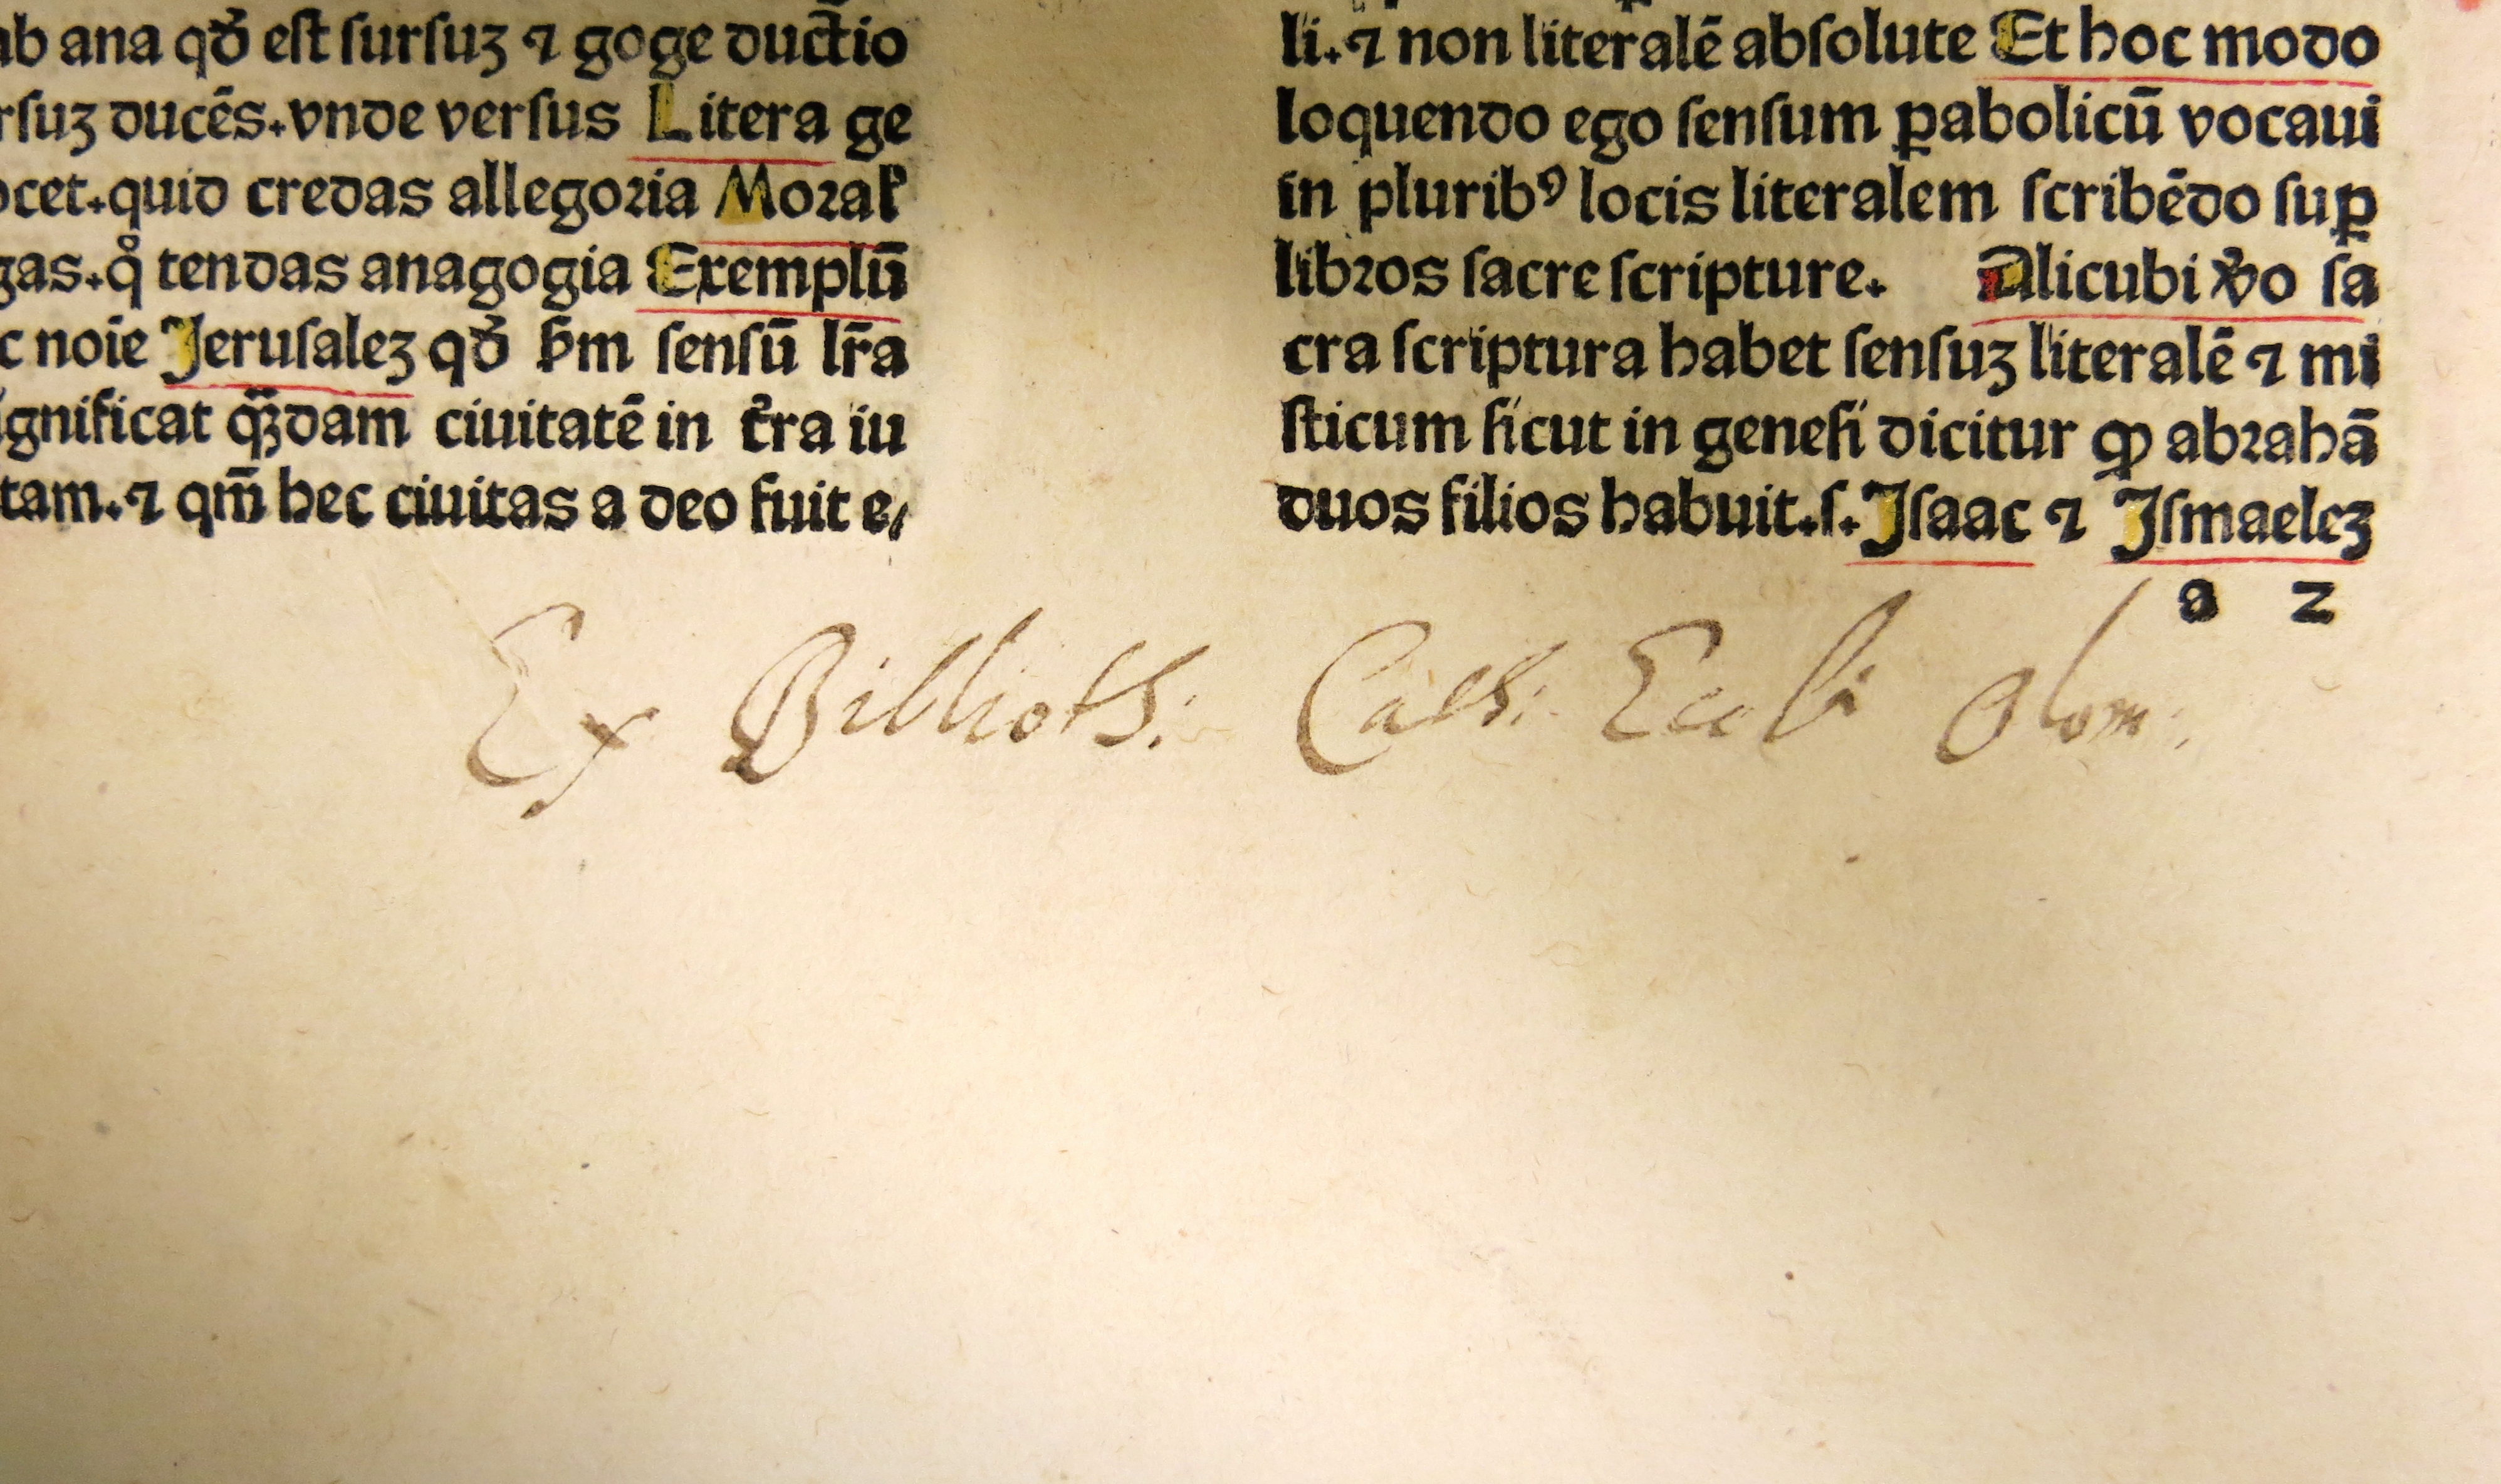 ab ana qđ est sursuz ⁊ goge ductio
rsuz ducēs.vnde versus Litera ge
ocet.quid credas allegoria Moral
gas.qͦ tendas anagogia Exemplū
c noīe Jerusalez qđ ẜm sensū lr̄a
ignificat quādam ciuitatē in t̄ra iu
tam.⁊ qm̄ hec ciuitas a deo fuit e
li.⁊ non literalē absolute Et hoc modo
loquendo ego sensum ꝑabolicū vocaui
in pluribꝰ locis literalem scribēdo suꝑ
libros sacre scripture. Alicubi v̄o sa
cra scriptura habet sensuz literalē ⁊ mi
sticum sicut in genesi dicitur ꝙ abrahā
duos filios habuit.s.Isaac ⁊ Ismaelez
a 2
Ex Biblioth: Cath: Eccl͞i Olom: